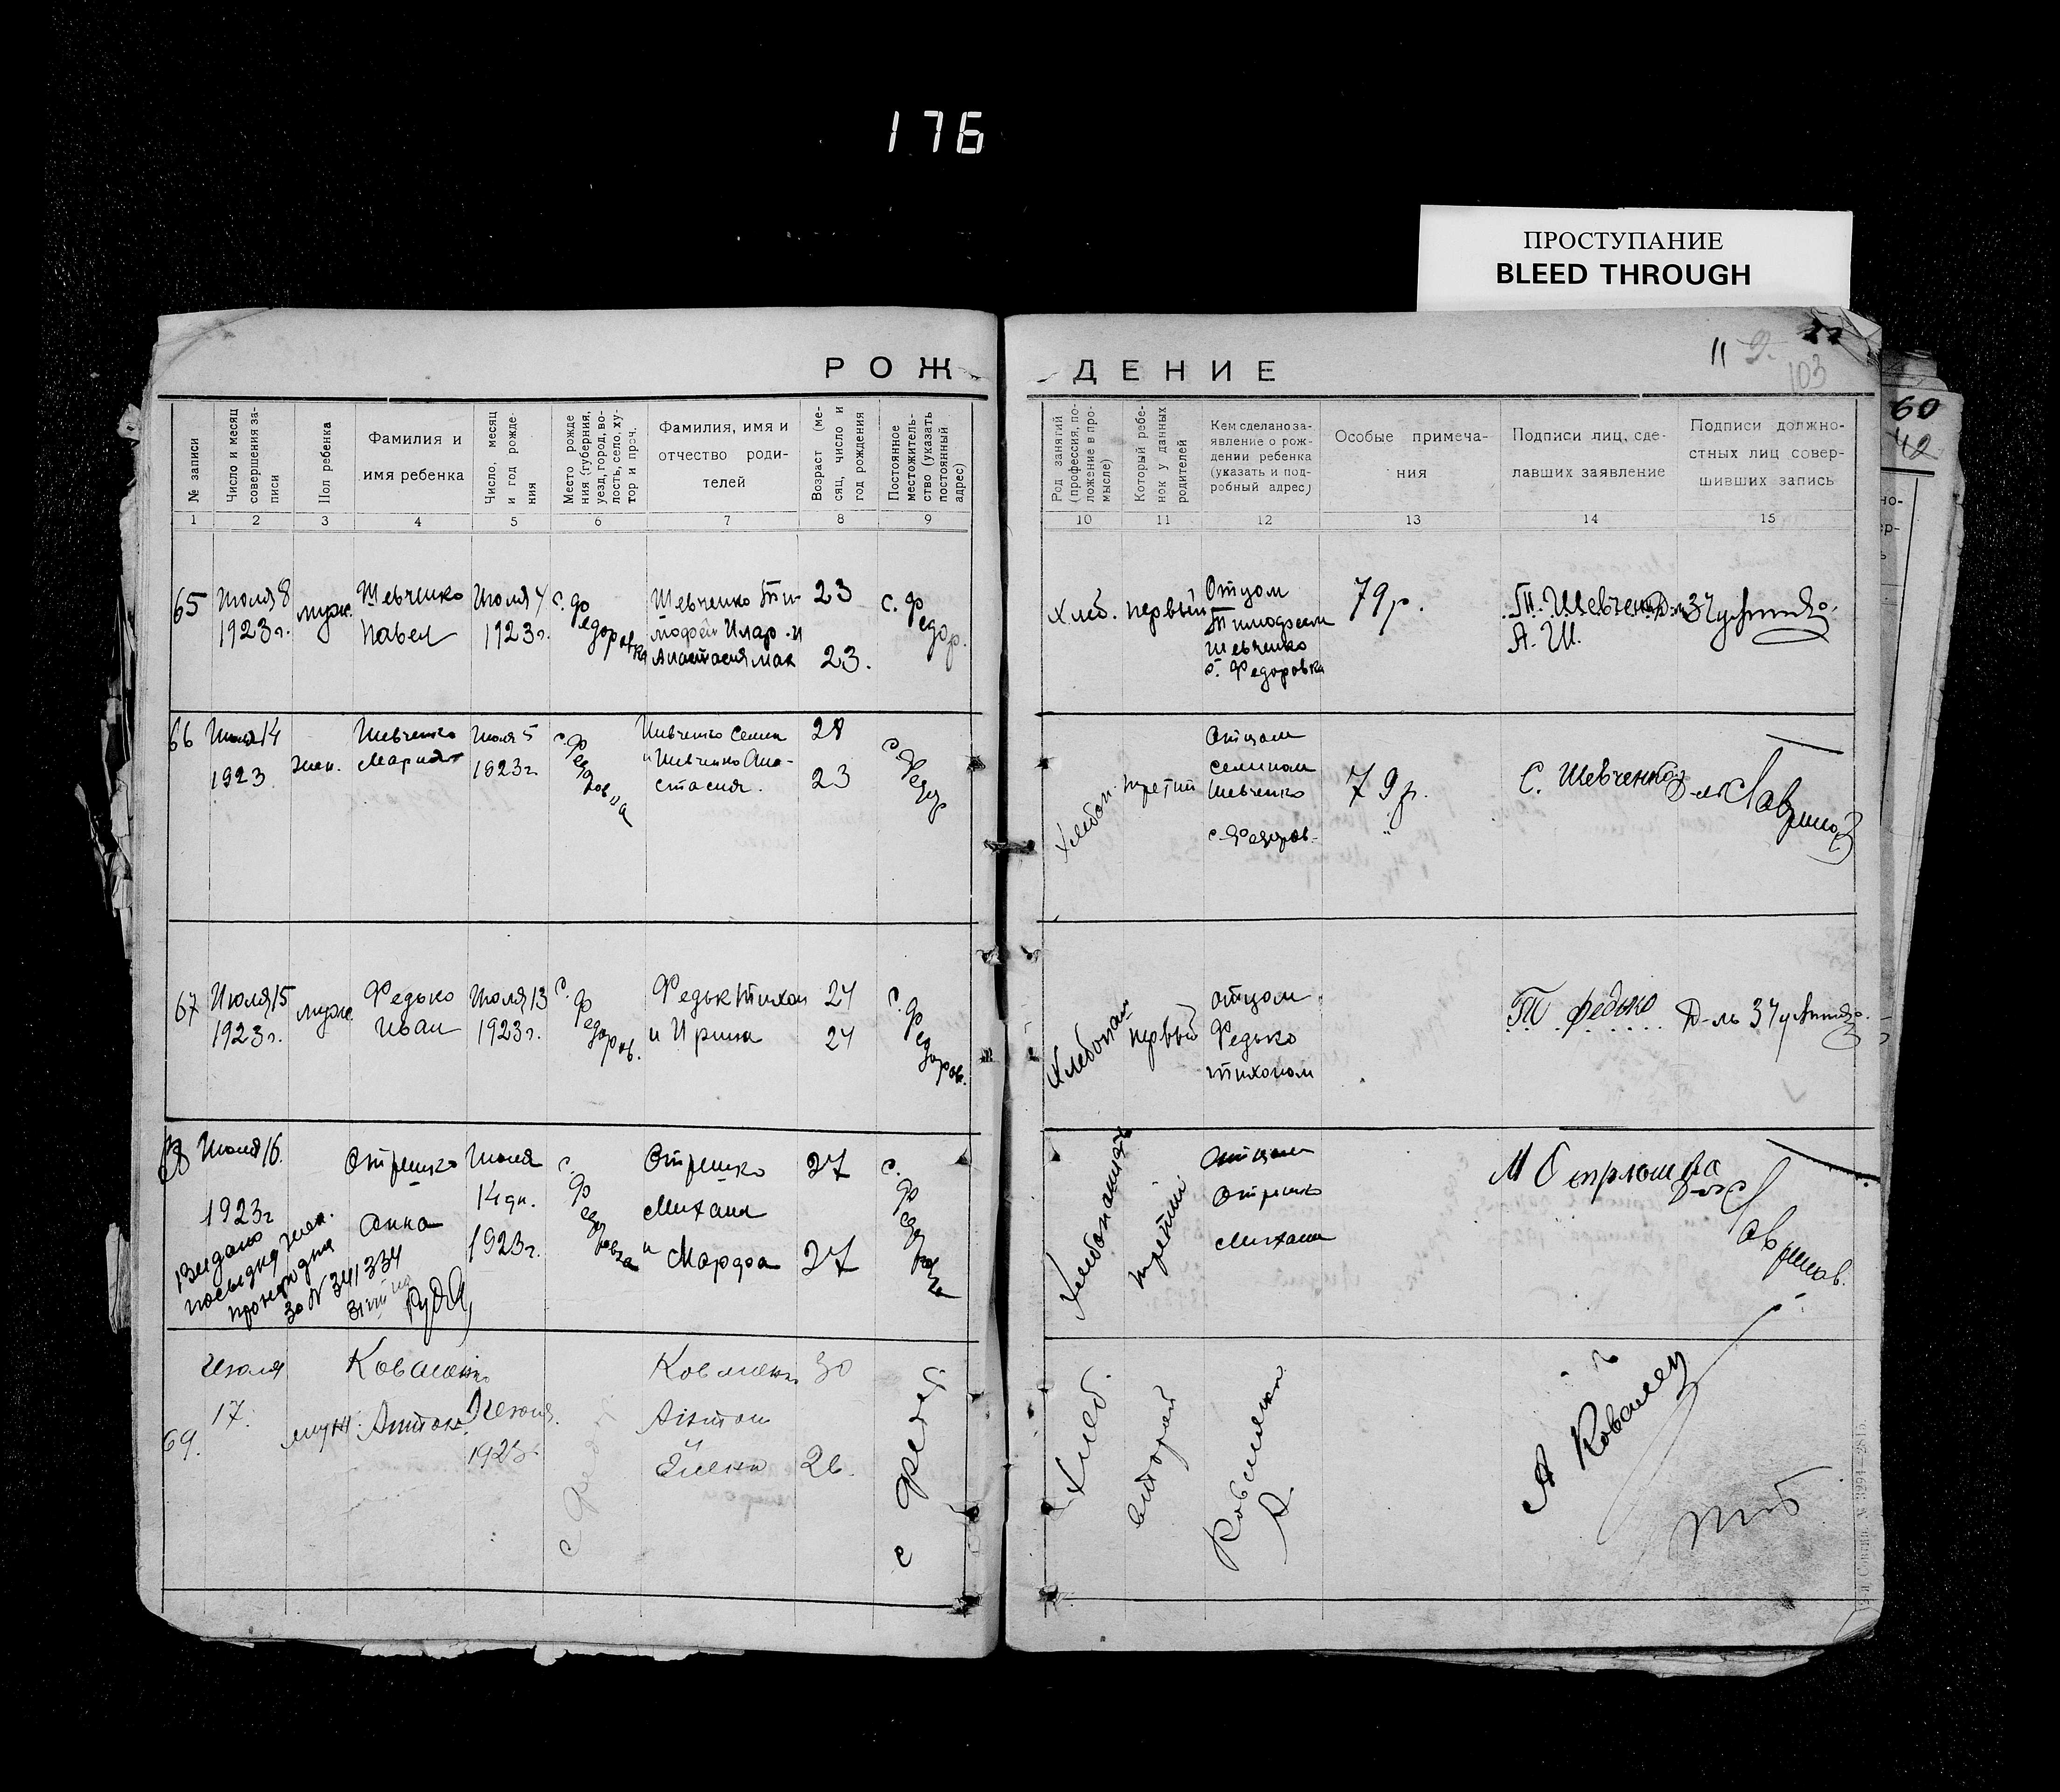 176
ПРОСТУПАНИЕ
BLEED THROUGH
РОЖ
ДЕНИЕ
11
103
60
42
№ записи
Число и месяц совершения за-
писи
Пол ребенка
Фамилия и
имя ребенка
Число, месяц
и год рожде-
ния
Место рожде
ния (губерния,
уезд, город, во-
лость, село, ху-
тор и проч.
Фамилия, имя и
отчество роди-
телей
Возраст (ме-
сяц, число и
год рождения
Постоянное
местожитель-
ство (указать
постоянный
адрес)
Род занятий
(профессия, по-
ложение в про-
мысле)
Который ребе-
нок у данных
родителей
Кем сделано за-
явление о рож-
дении ребенка
(указать и под-
робный адрес)
Особые примеча-
ния
Подписи лиц, сде-
лавших заявление
Подписи должно-
стных лиц совер-
шивших запись
1 2 3 4 5 6 7 8 9
10 11 12 13 14 15
65
Июля 8
1923 г.
муж.
Шевченко
Павел
Июля 4
1923 г.
с. Федоровка
Шевченко Ти-
мофей Илар. и
Анастасия Мак
23
23.
с. Федор.
Хлеб.
первый
Отцом
Тимофеем
Шевченко
с. Федоровка
79 р.
Т. Шевченко
А. Ш.
66
Июля 14
1923
жен.
Шевченко
Мария
Июля 5
1923 г.
с. Федоровка
Шевченко Семен
и Шевченко Ана-
стасия.
28
23
с. Федор
Хлебоп.
третий
Отцом
Семеном
Шевченко
с. Федоров.
79 р.
С. Шевченко
67
Июля 15
1923 г.
муж.
Федько
Иван
Июля 13
1923 г.
с. Федоров.
Федьк Тихон
и Ирина
24
24
с. Федоров.
Хлебопаш
первый
отцом
Федько
Тихоном
Т Федько
Д-ль
68
Июля 16.
1923 г
Отрешко
Анна
Июля
14 дн.
1923 г.
с. Федоровка
Отрешко
Михаил
и Марфа
27
27
с. Федоровка
Видано
посьидку
за № 341334
Хлебопашец
третий
Отцом
Отрешко
Михаил
69.
Июля
17.
муж.
Коваленко
Антон
Июля.
1923
с Федор
Коваленко
Антон
Елена
30
26.
с Федор.
Хлеб.
второй
Коваленко
А.
А Ковален